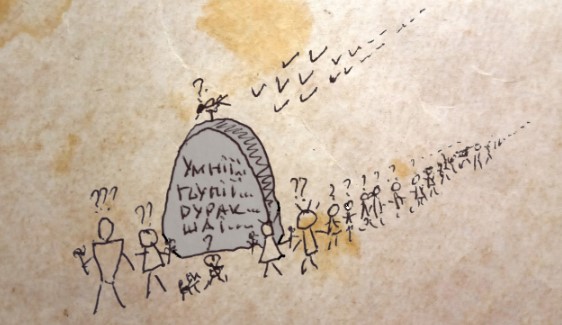 ?
УМНІЇ...
???
ГЛУПІЇ...
??
DУРАК...
??
ША!....
?